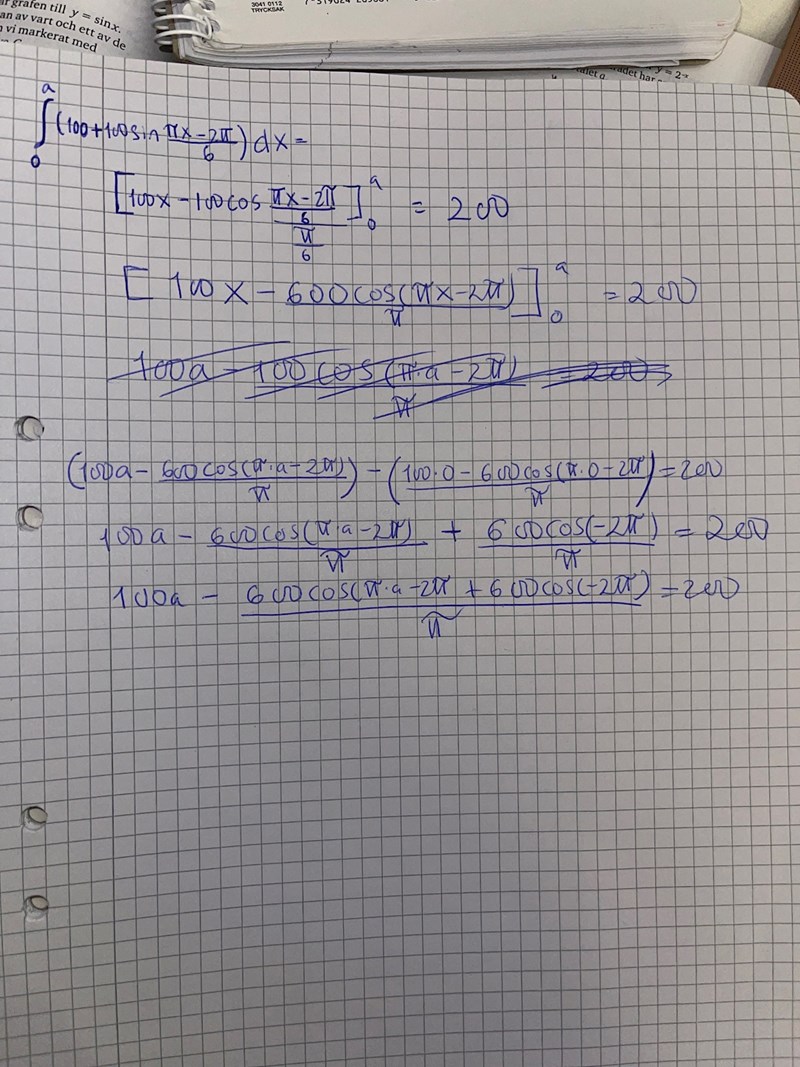 grafen till y = sinx.
an av vart och ett av de
vi markerat med
3041 0112
TRYCKSAK
y = 2
∫₀ᵃ (100+100sin (πx−2π)/6) dx =
[100x − 100cos ((πx−2π)/6)/(π/6)]₀ᵃ = 200
[100x − 600cos(πx−2π)/π]₀ᵃ = 200
100a − 100cos(π·a−2π)/π = 200
(100a − 600cos(π·a−2π)/π) − (100·0 − 600cos(π·0−2π)/π) = 200
100a − 600cos(π·a−2π)/π + 600cos(−2π)/π = 200
100a − (600cos(π·a−2π + 600cos(−2π))/π = 200